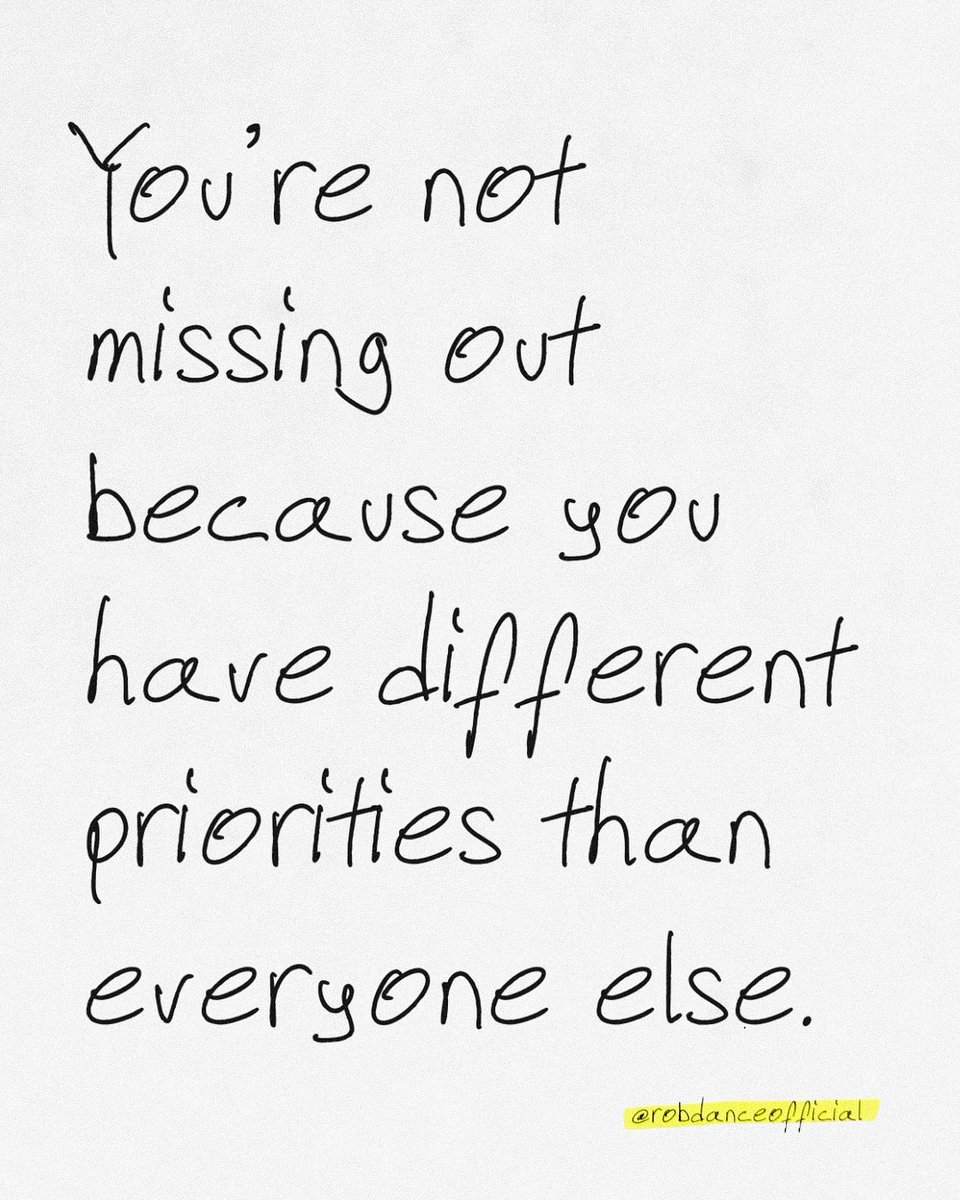 You're not
missing out
because you
have different
priorities than
everyone else.
@robdanceofficial